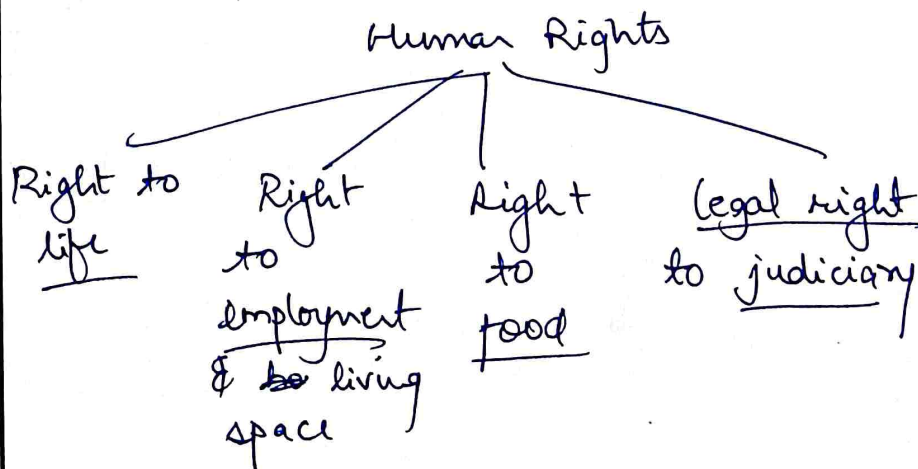 Human Rights
Right to
life
Right
to
employment
& living
space
Right
to
food
legal right
to judiciary